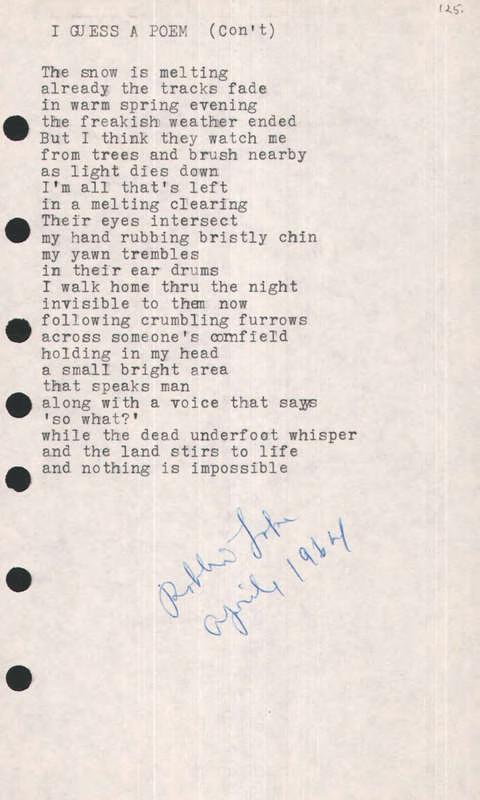 125.
I GUESS A POEM (Con't)
The snow is melting
already the tracks fade
in warm spring evening
the freakish weather ended
But I think they watch me
from trees and brush nearby
as light dies down
I'm all that's left
in a melting clearing
Their eyes intersect
my hand rubbing bristly chin
my yawn trembles
in their ear drums
I walk home thru the night
invisible to them now
following crumbling furrows
across someone's cornfield
holding in my head
a small bright area
that speaks man
along with a voice that says
'so what?'
while the dead underfoot whisper
and the land stirs to life
and nothing is impossible
April 1964